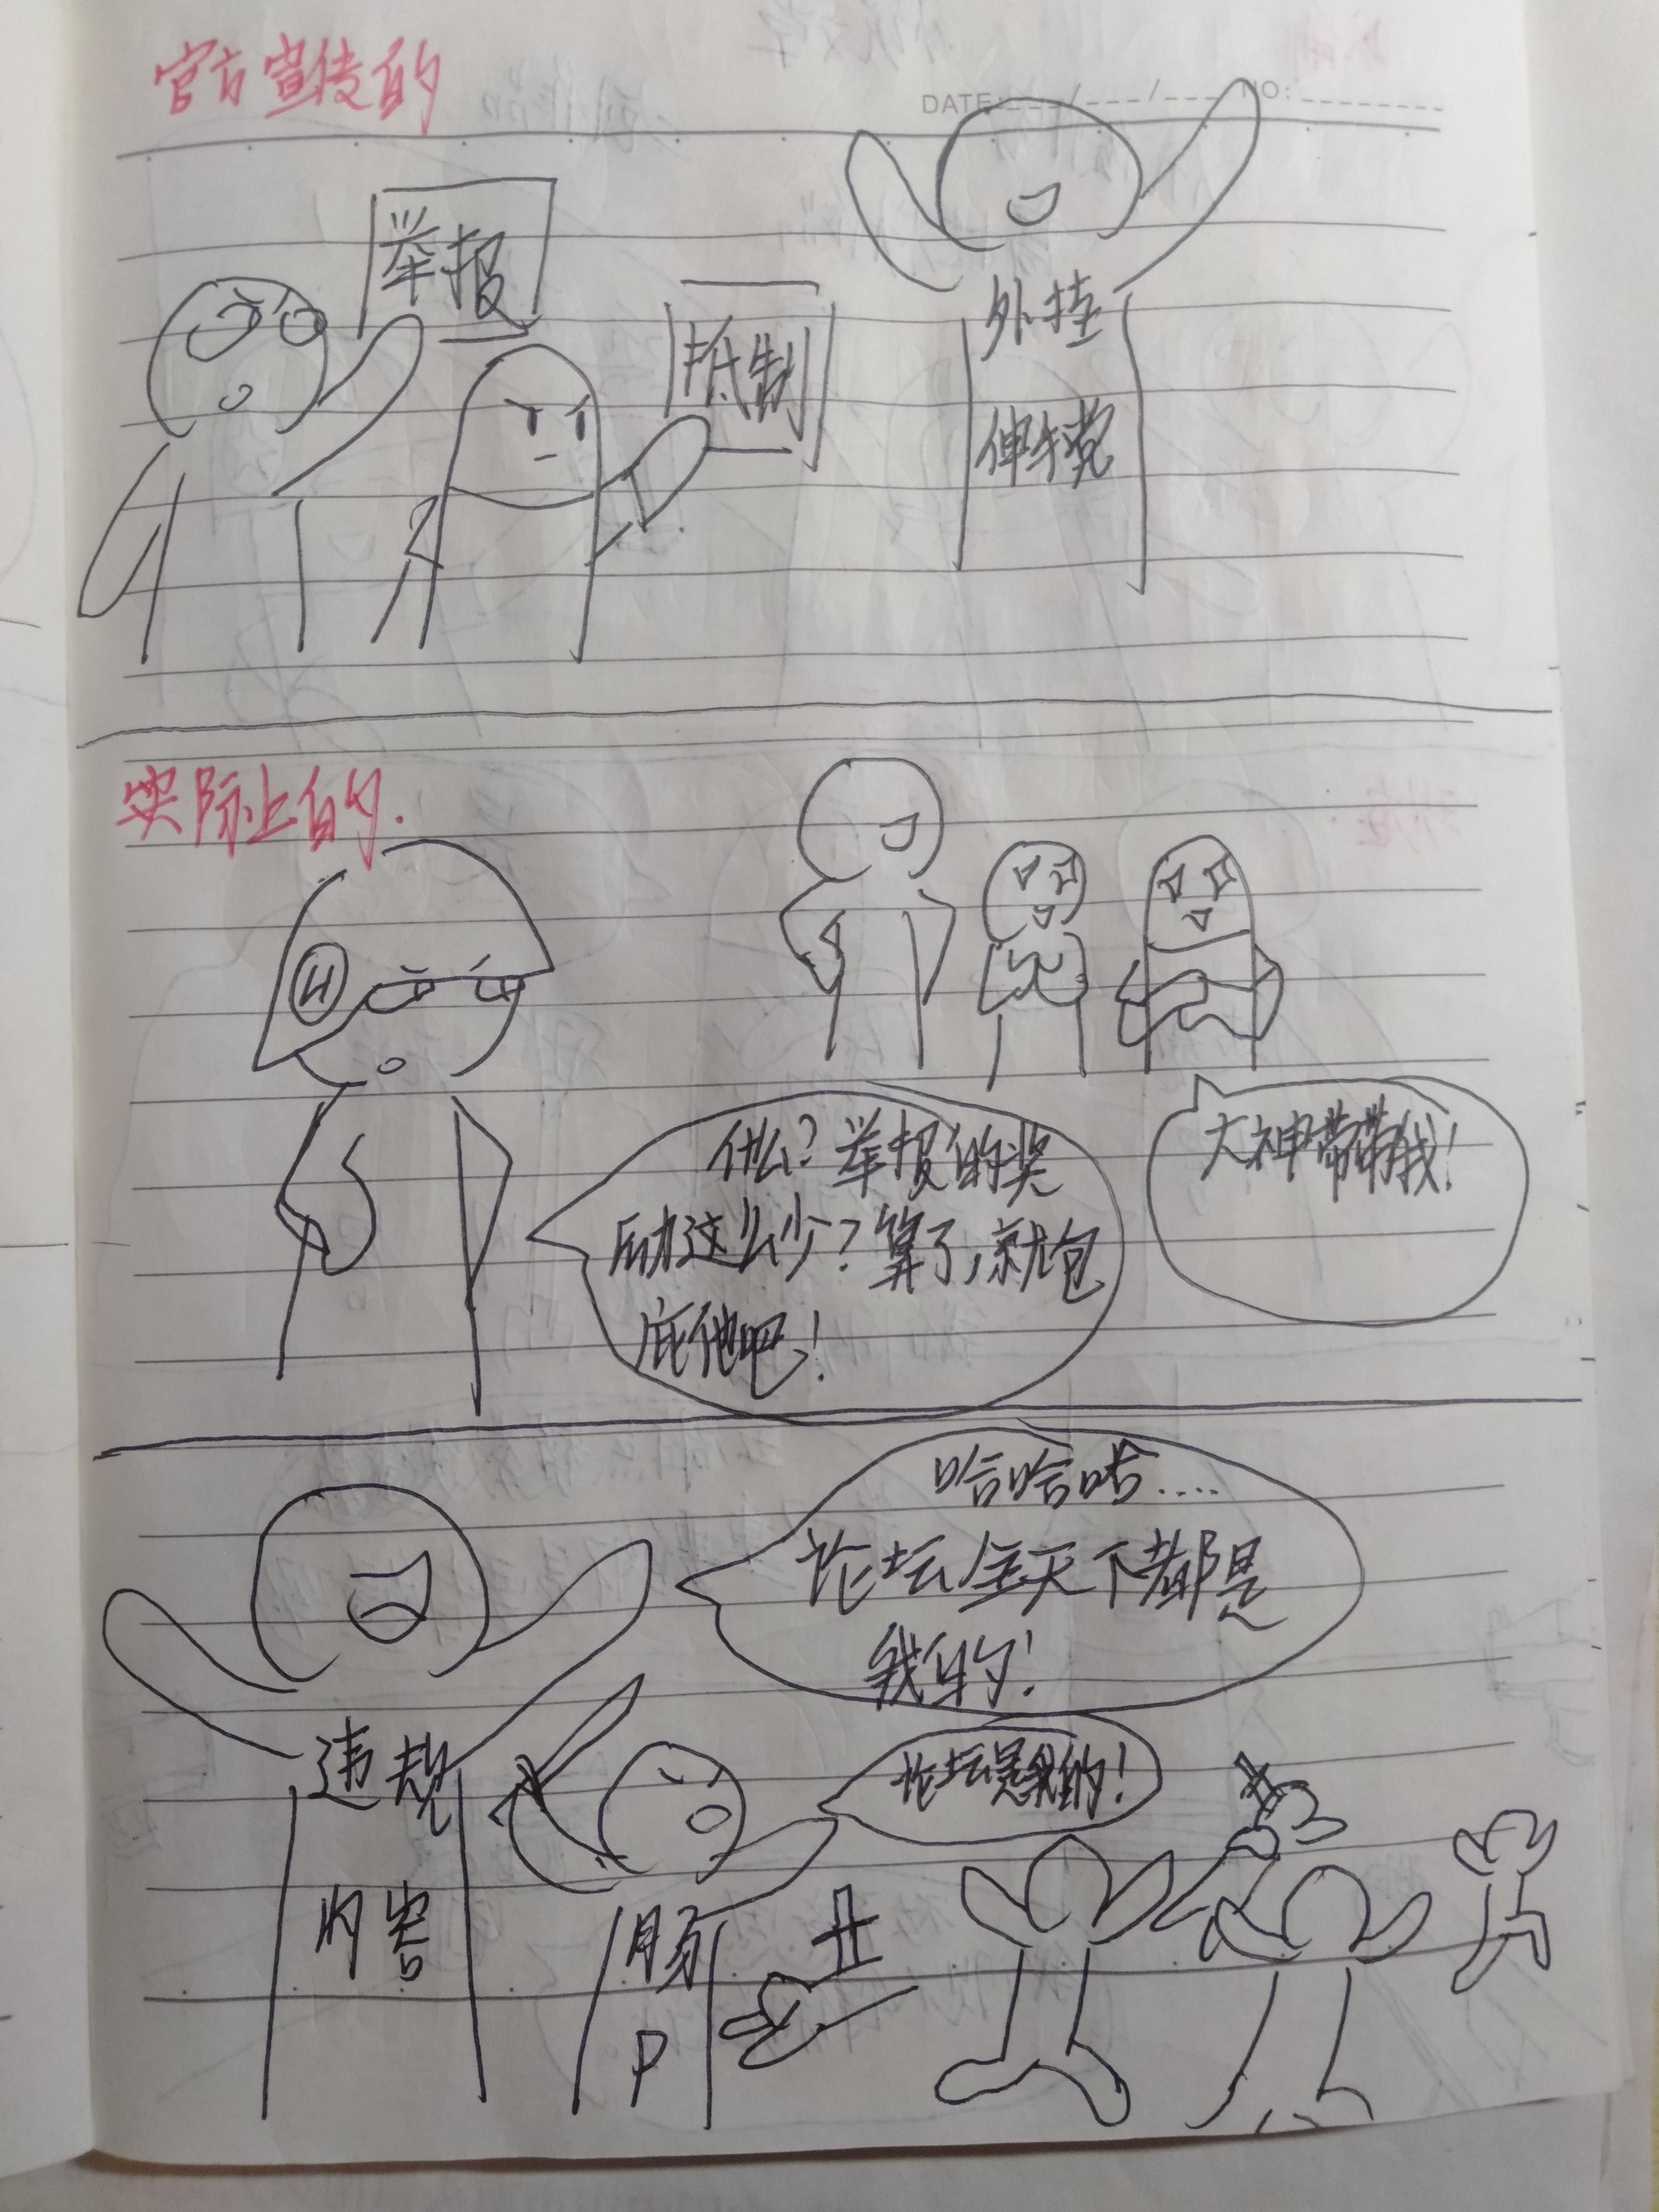 官方宣传的
DATE: / / NO:
举报
抵制
外挂
伸手党
实际上的.
H
什么?举报的奖
励这么少?算了,就包
庇他吧!
大神带带我!
哈哈哈....
论坛全天下都是
我的!
违规
内容
论坛是我的!
P